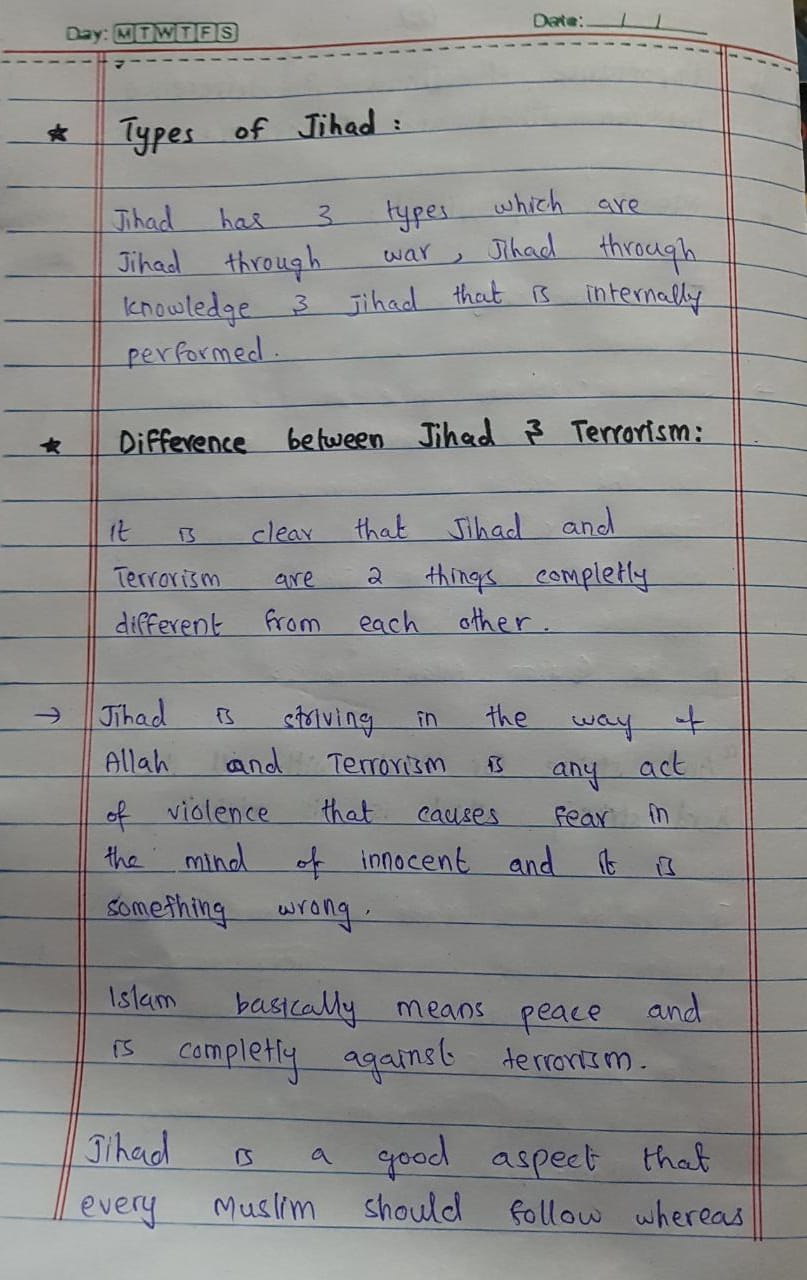 Day: M T W T F S
Date: / /
★ Types of Jihad :
Jihad has 3 types which are
Jihad through war, Jihad through
knowledge & Jihad that is internally
performed.
★ Difference between Jihad & Terrorism:
It is clear that Jihad and
Terrorism are 2 things completly
different from each other.
→ Jihad is striving in the way of
Allah and Terrorism is any act
of violence that causes fear in
the mind of innocent and it is
something wrong.
Islam basically means peace and
is completly against terrorism.
Jihad is a good aspect that
every Muslim should follow whereas